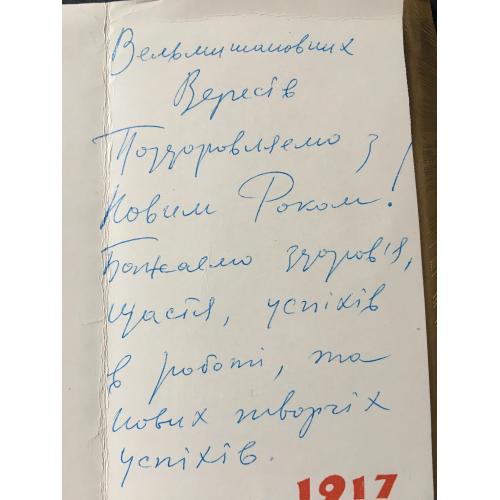 Вельмишановних
Вересів
Поздоровляємо з
Новим Роком!
Бажаємо здоров'я,
щастя, успіхів
в роботі, та
нових творчіх
успіхів.
1917